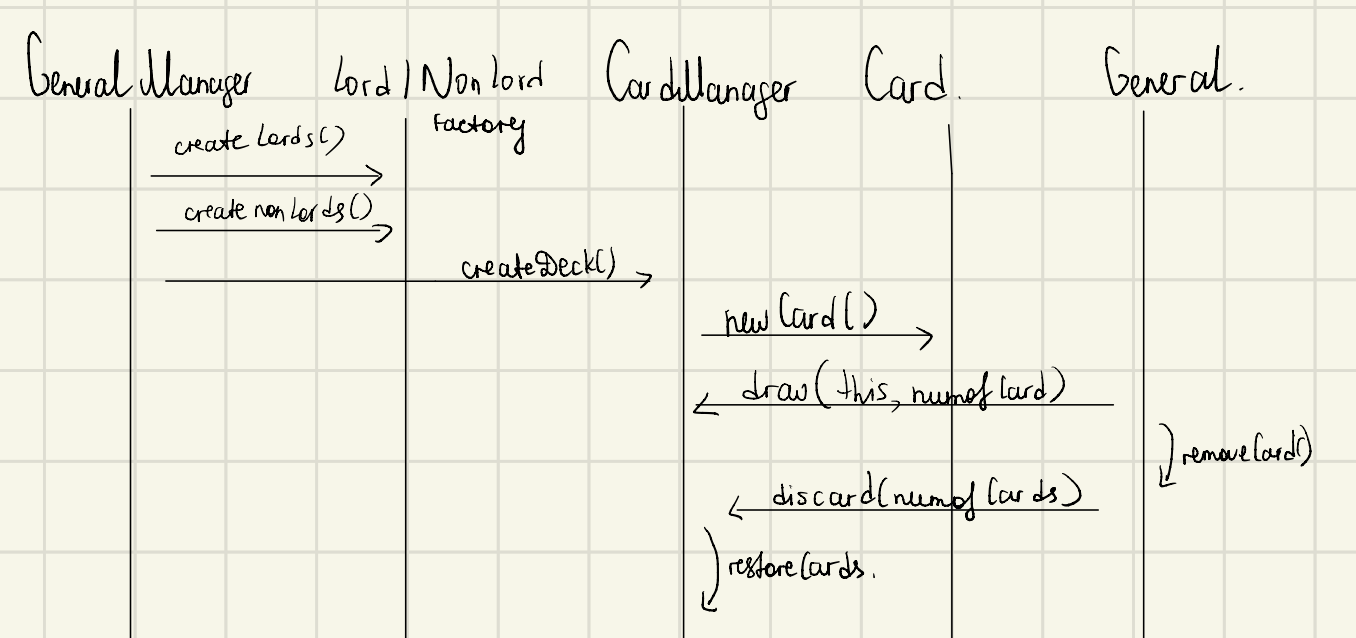 General Manager Lord/Nonlord CardManager Card. General.
Factory
create Lords()
create nonLords()
createDeck()
new Card()
draw(this, numofCard)
removeCard()
discard(numofCards)
restoreCards.